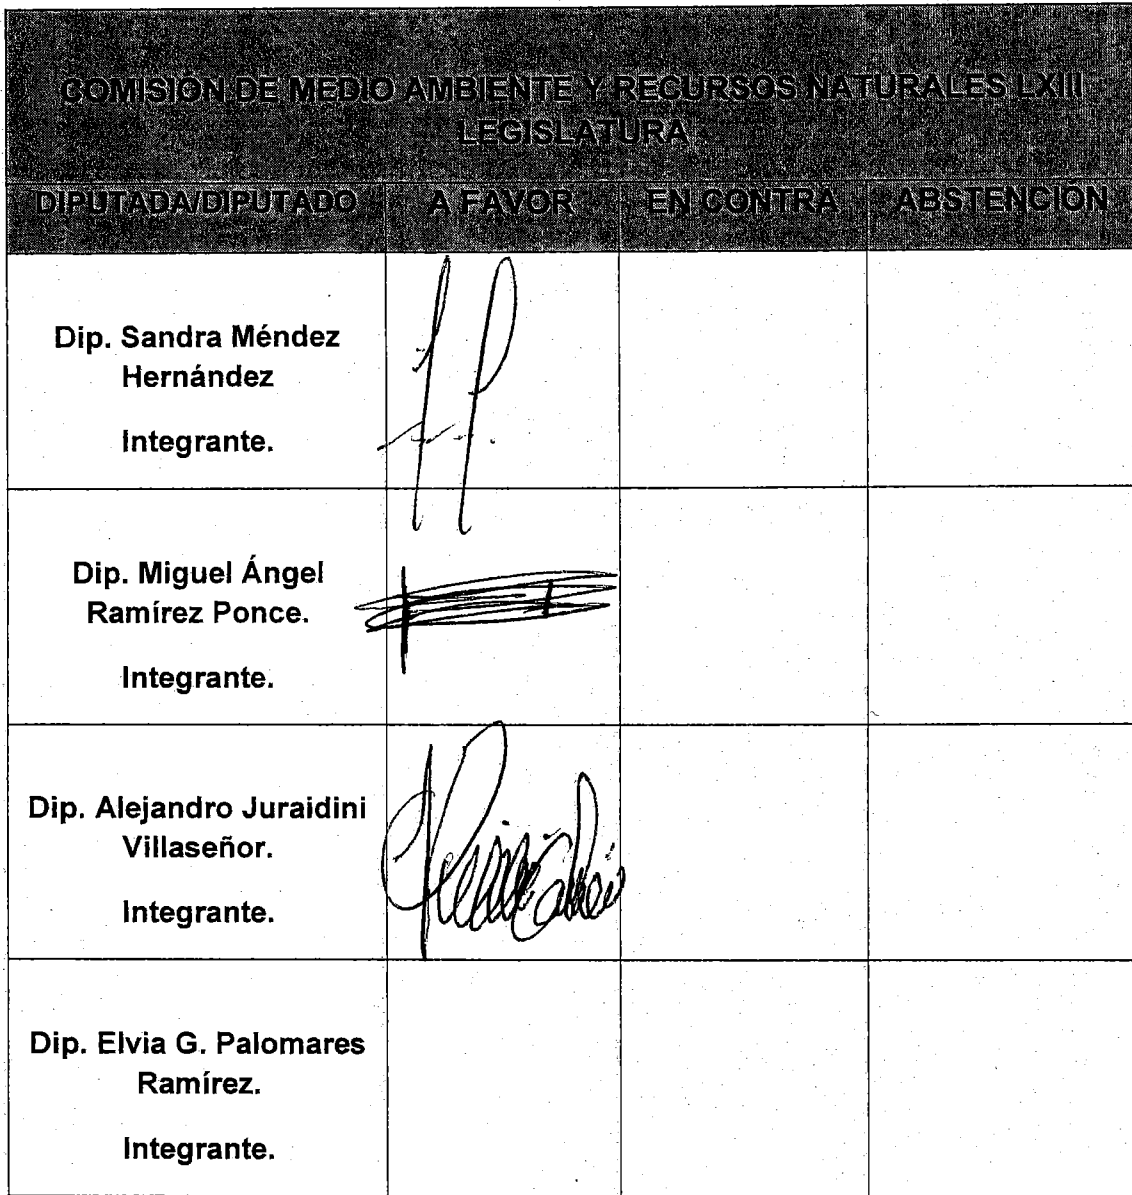 COMISIÓN DE MEDIO AMBIENTE Y RECURSOS NATURALES LXIII
LEGISLATURA
DIPUTADA/DIPUTADO A FAVOR EN CONTRA ABSTENCIÓN
Dip. Sandra Méndez
Hernández
Integrante.
Dip. Miguel Ángel
Ramírez Ponce.
Integrante.
Dip. Alejandro Juraidini
Villaseñor.
Integrante.
Dip. Elvia G. Palomares
Ramírez.
Integrante.